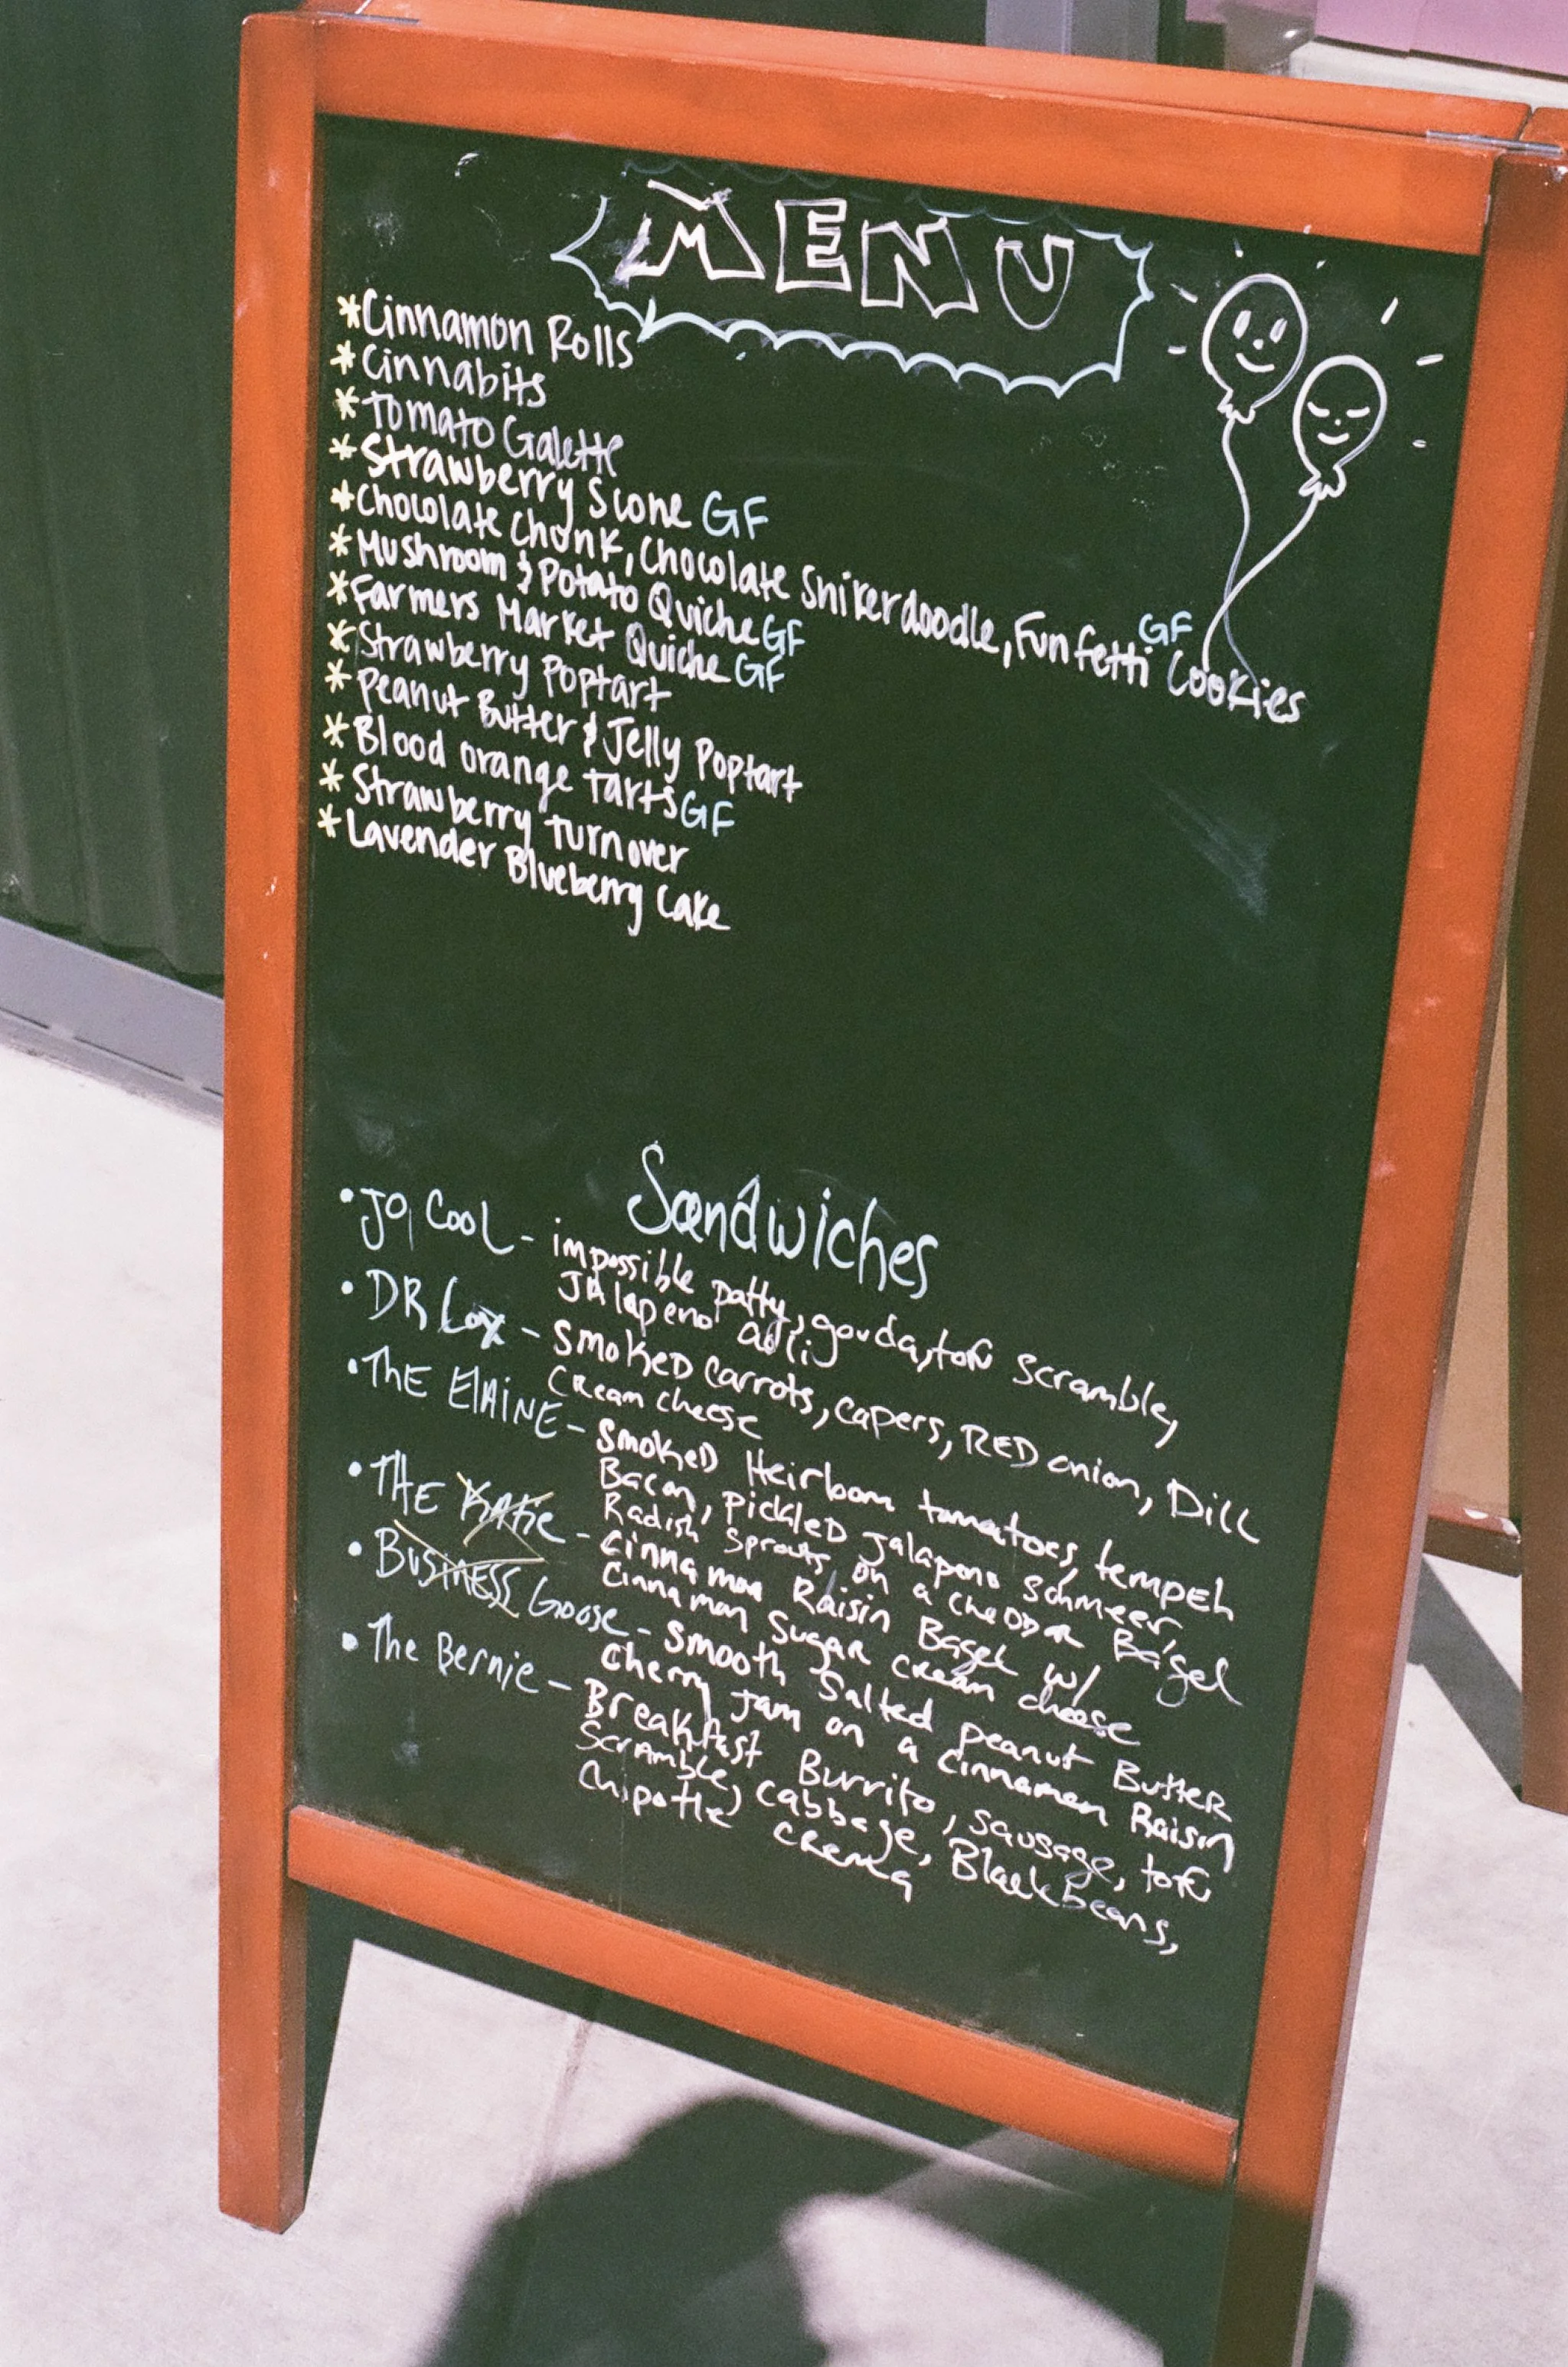 MENU
*Cinnamon Rolls
*Cinnabits
*Tomato Galette
*Strawberry Scone GF
*Chocolate Chonk, Chocolate Snikerdoodle, Funfetti GF Cookies
*Mushroom & Potato Quiche GF
*Farmers Market Quiche GF
*Strawberry Poptart
*Peanut Butter & Jelly Poptart
*Blood orange tarts GF
*Strawberry turnover
*Lavender Blueberry Cake
Sandwiches
•JO, COOL - impossible patty, gouda, tofu scramble,
JAlapeno aoli
•DR Lox - SmokED carrots, capers, RED onion, Dill
CReam cheese
•ThE ElAINE - SmokED Heirloom tomatoes, tempeh
Bacon, PickleD Jalapeno Schmeer
Radish Sprouts on a cheDDAR Bagel
•THE KATie - Cinnamon Raisin Bagel w/
Cinnamon SugaR cream cheese
•BUSINESS Goose - Smooth Salted peanut ButteR
Cherry Jam on a Cinnamon Raisin
•The Bernie - Breakfast Burrito, sausage, tofu
Scramble, cabbage, Blackbeans,
Chipotle CRema